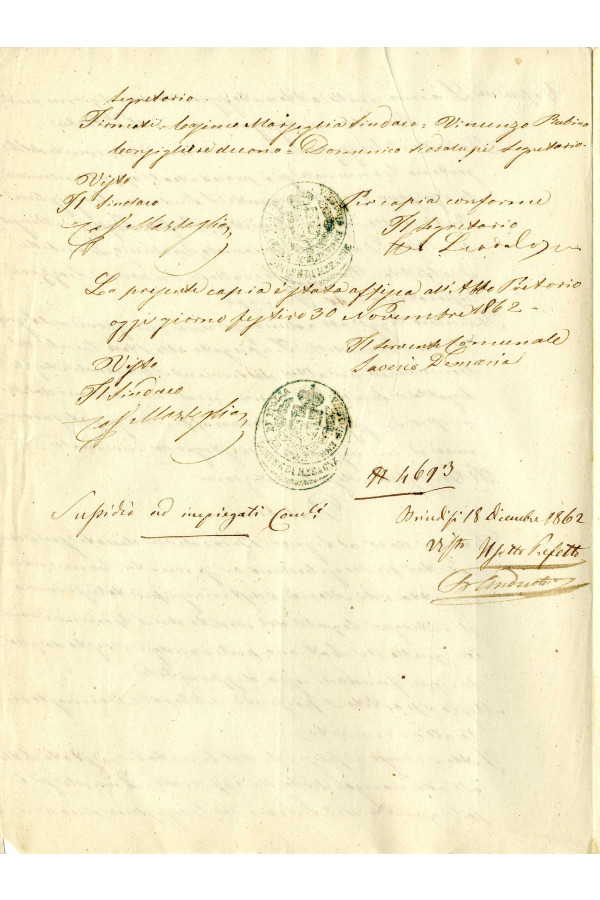 Segretario
Firmati Cosimo Marseglia Sindaco = Vincenzo Rubino
Consigliere decano = Domenico Scodalupi Segretario.
Visto
Il Sindaco
Per copia conforme
Il Segretario
Cos° Marseglia
La presente copia è stata affissa all'Albo Pretorio
oggi giorno festivo 30 Novembre 1862 -
Il servente Comunale
Saverio Demaria
Visto
Il Sindaco
Cos° Marseglia
N 4693
Sussidio ad impiegati Com.li
Brindisi 18 Dicembre 1862
Visto Il Sotto Prefetto